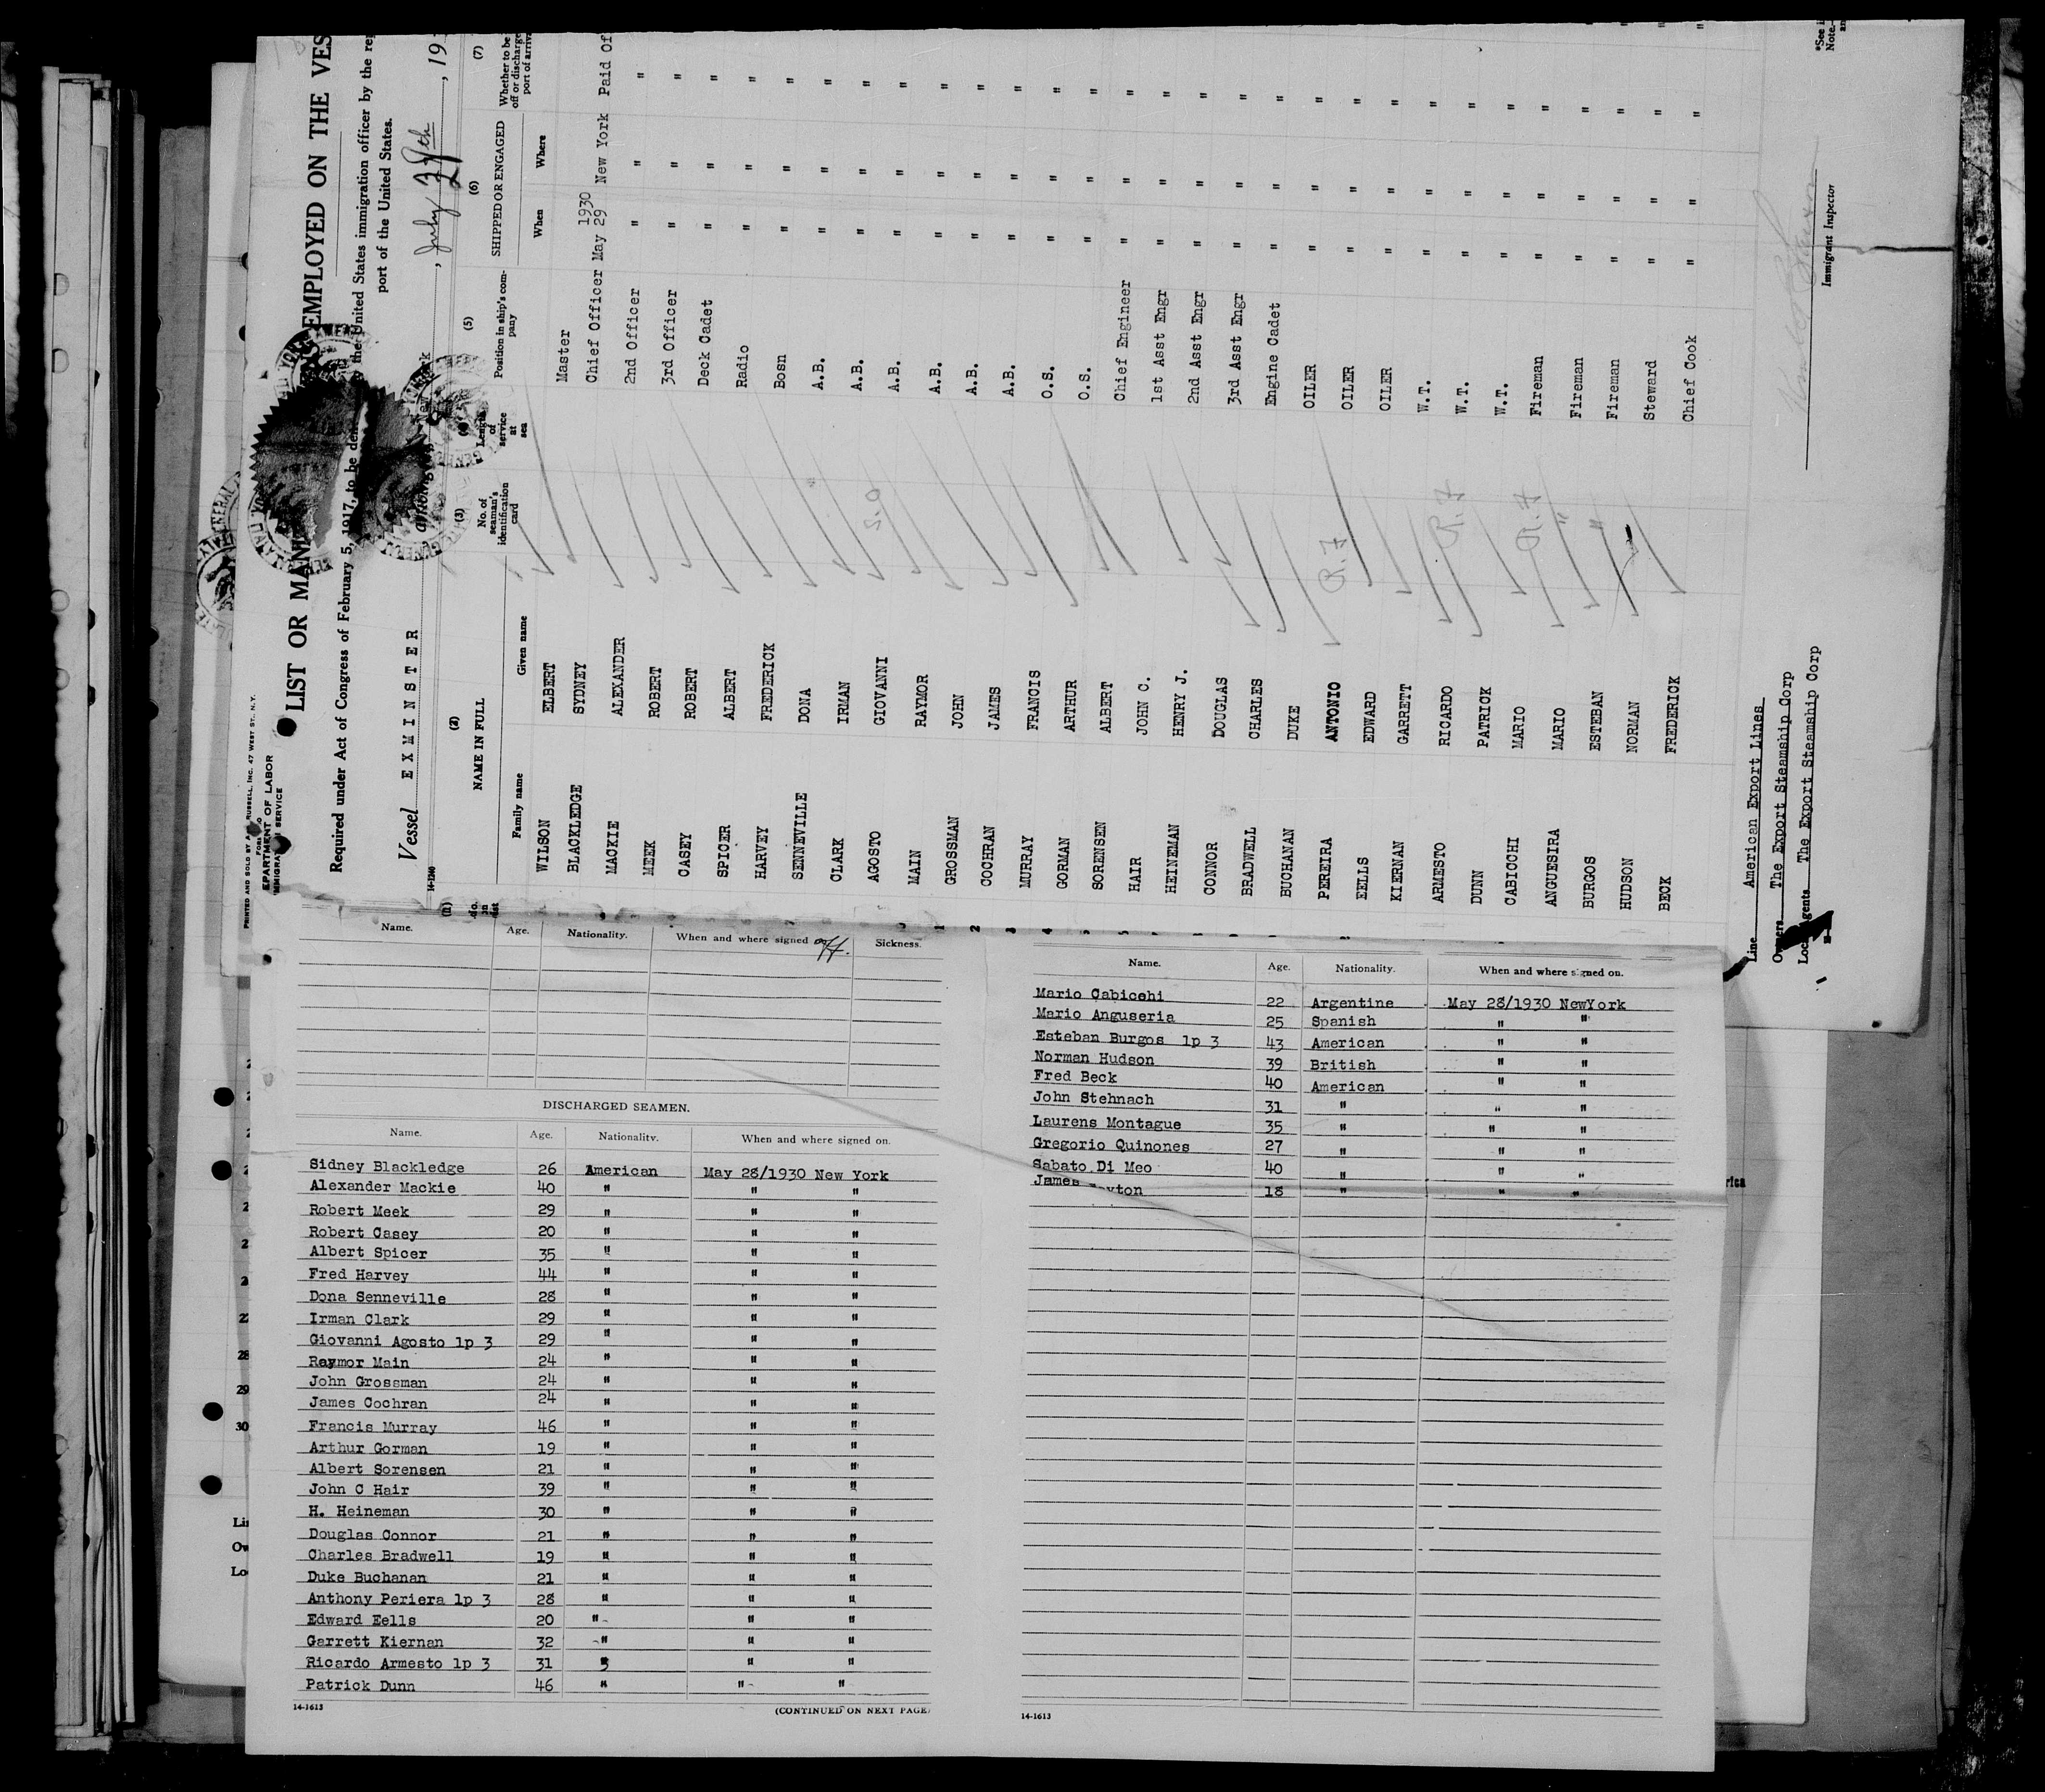 PRINTED AND SOLD BY RUSSELL, INC. 47 WEST ST., N.Y.
EPARTMENT OF LABOR
IMMIGRAT SERVICE
LIST OR MAN EMPLOYED ON THE VES
Required under Act of Congress of February 5, 1917, to be de the United States immigration officer by the re
port of the United States.
Vessel EXMINSTER New York, July 28th, 19
14-1240
(1) (2) (3) (5) (6) (7)
NAME IN FULL No. of seaman's identification card Length of service at sea Position in ship's company SHIPPED OR ENGAGED Whether to be off or discharge port of arriv
Family name Given name When Where
WILSON ELBERT Master
1930
BLACKLEDGE SYDNEY Chief Officer May 29 New York Paid Of
MACKIE ALEXANDER 2nd Officer " " "
MEEK ROBERT 3rd Officer " " "
CASEY ROBERT Deck Cadet " " "
SPICER ALBERT Radio " " "
HARVEY FREDERICK Bosn " " "
SENNEVILLE DONA A.B. " " "
CLARK IRMAN A.B. " " "
AGOSTO GIOVANNI A.B. " " "
MAIN RAYMOR A.B. " " "
GROSSMAN JOHN A.B. " " "
COCHRAN JAMES A.B. " " "
MURRAY FRANCIS O.S. " " "
GORMAN ARTHUR O.S. " " "
SORENSEN ALBERT Chief Engineer " " "
HAIR JOHN C. 1st Asst Engr " " "
HEINEMAN HENRY J. 2nd Asst Engr " " "
CONNOR DOUGLAS 3rd Asst Engr " " "
BRADWELL CHARLES Engine Cadet " " "
BUCHANAN DUKE OILER " " "
PEREIRA ANTONIO OILER " " "
EELLS EDWARD OILER " " "
KIERNAN GARRETT W.T. " " "
ARMESTO RICARDO W.T. " " "
DUNN PATRICK W.T. " " "
CABICCHI MARIO Fireman " " "
ANGUESIRA MARIO Fireman " " "
BURGOS ESTEBAN Fireman " " "
HUDSON NORMAN Steward " " "
BECK FREDERICK Chief Cook " " "
Line American Export Lines
Owners The Export Steamship Corp
Local Agents The Export Steamship Corp
Immigrant Inspector
Name. Age. Nationality. When and where signed off. Sickness.
DISCHARGED SEAMEN.
Name. Age. Nationality. When and where signed on.
Sidney Blackledge 26 American May 28/1930 New York
Alexander Mackie 40 " " "
Robert Meek 29 " " "
Robert Casey 20 " " "
Albert Spicer 35 " " "
Fred Harvey 44 " " "
Dona Senneville 28 " " "
Irman Clark 29 " " "
Giovanni Agosto lp 3 29 " " "
Raymor Main 24 " " "
John Grossman 24 " " "
James Cochran 24 " " "
Francis Murray 46 " " "
Arthur Gorman 19 " " "
Albert Sorensen 21 " " "
John C Hair 39 " " "
H. Heineman 30 " " "
Douglas Connor 21 " " "
Charles Bradwell 19 " " "
Duke Buchanan 21 " " "
Anthony Periera lp 3 28 " " "
Edward Eells 20 " " "
Garrett Kiernan 32 " " "
Ricardo Armesto lp 3 31 " " "
Patrick Dunn 46 " " "
14-1613 (CONTINUED ON NEXT PAGE)
Name. Age. Nationality. When and where signed on.
Mario Cabicchi 22 Argentine May 28/1930 NewYork
Mario Anguseria 25 Spanish " "
Esteban Burgos lp 3 43 American " "
Norman Hudson 39 British " "
Fred Beck 40 American " "
John Stehnach 31 " " "
Laurens Montague 35 " " "
Gregorio Quinones 27 " " "
Sabato Di Meo 40 " " "
James yton 18 " " "
14-1613